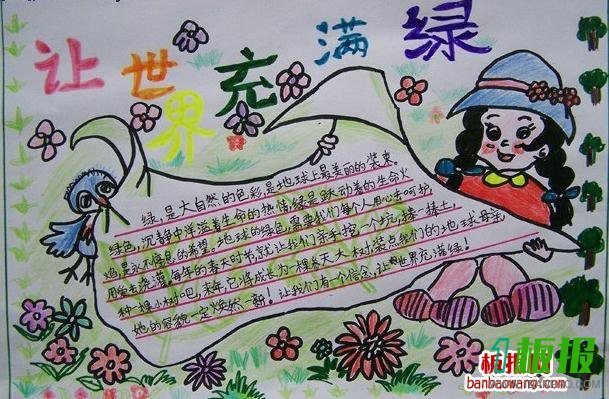 让世界充满绿
绿,是大自然的色彩,是地球上最美丽的装束。
绿色,沉静中洋溢着生命的热情,绿是跃动着的生命火
焰,是永不熄息的希望。地球的绿色,需要我们每个人用心去呵护,
用爱去浇灌。每年的春天时节,就让我们亲手挖一个坑,捧一捧土,
种一棵小树吧,来年,它将成长为一棵参天大树,装点我们的地球母亲,
她的容貌一定焕然一新!让我们有一个信念,让世界充满绿!
板报网
板报
banbaowang.com